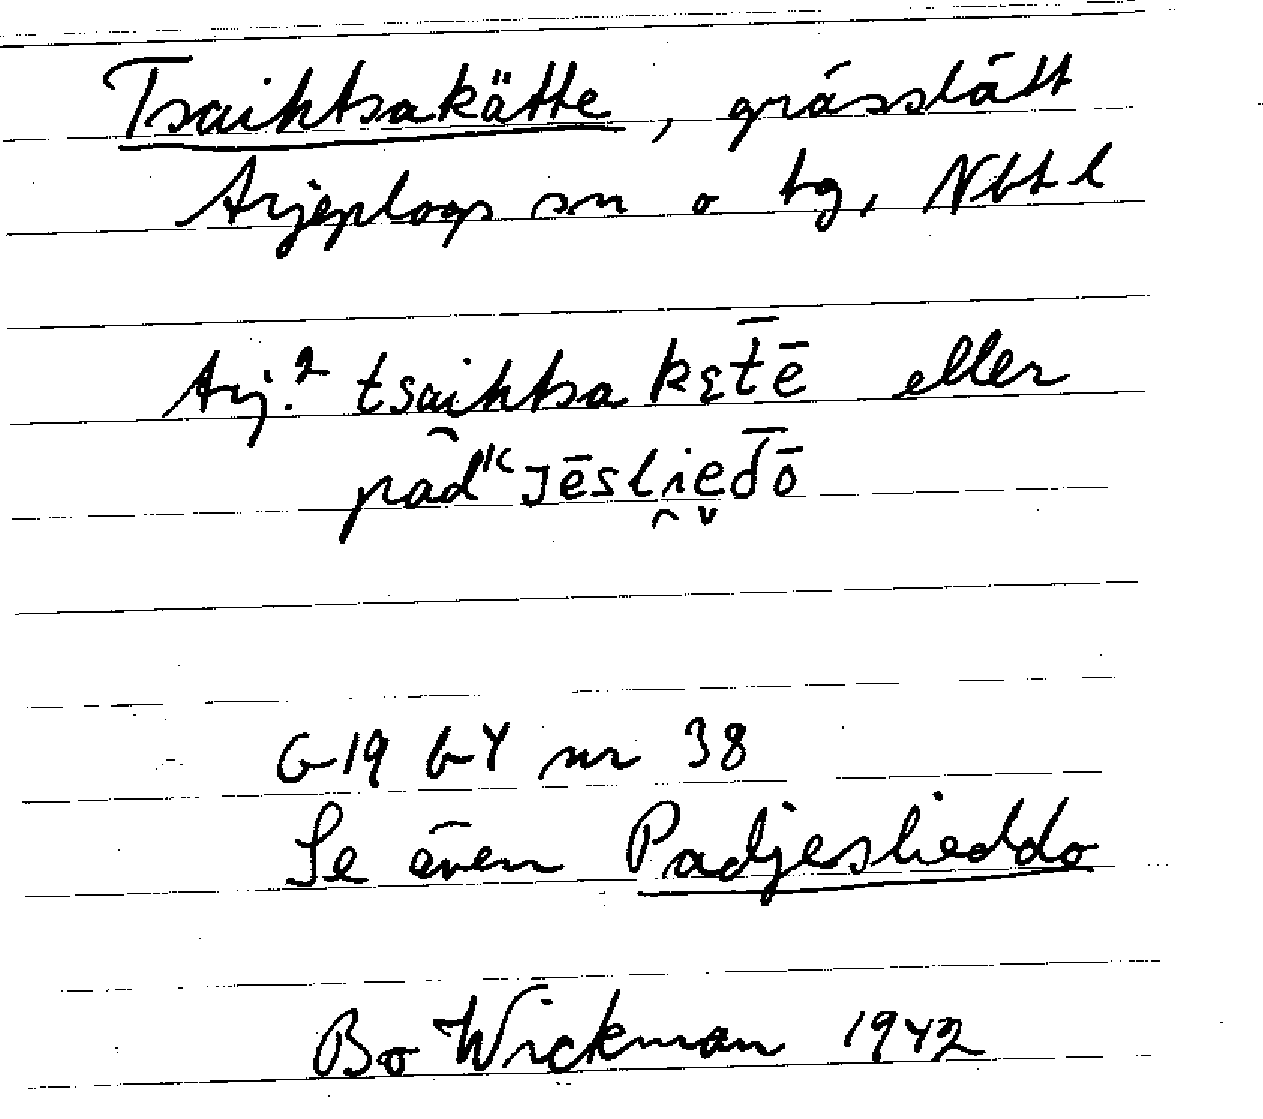 Tsaihtsakätte, grässlått
Arjeplogs sn o tg, Nbtl
Arj.² tsaihtsa kᴇt̄ē eller
eller
G19 b4 nr 38
Se även Padjeslieddo
Bo Wickman 1942